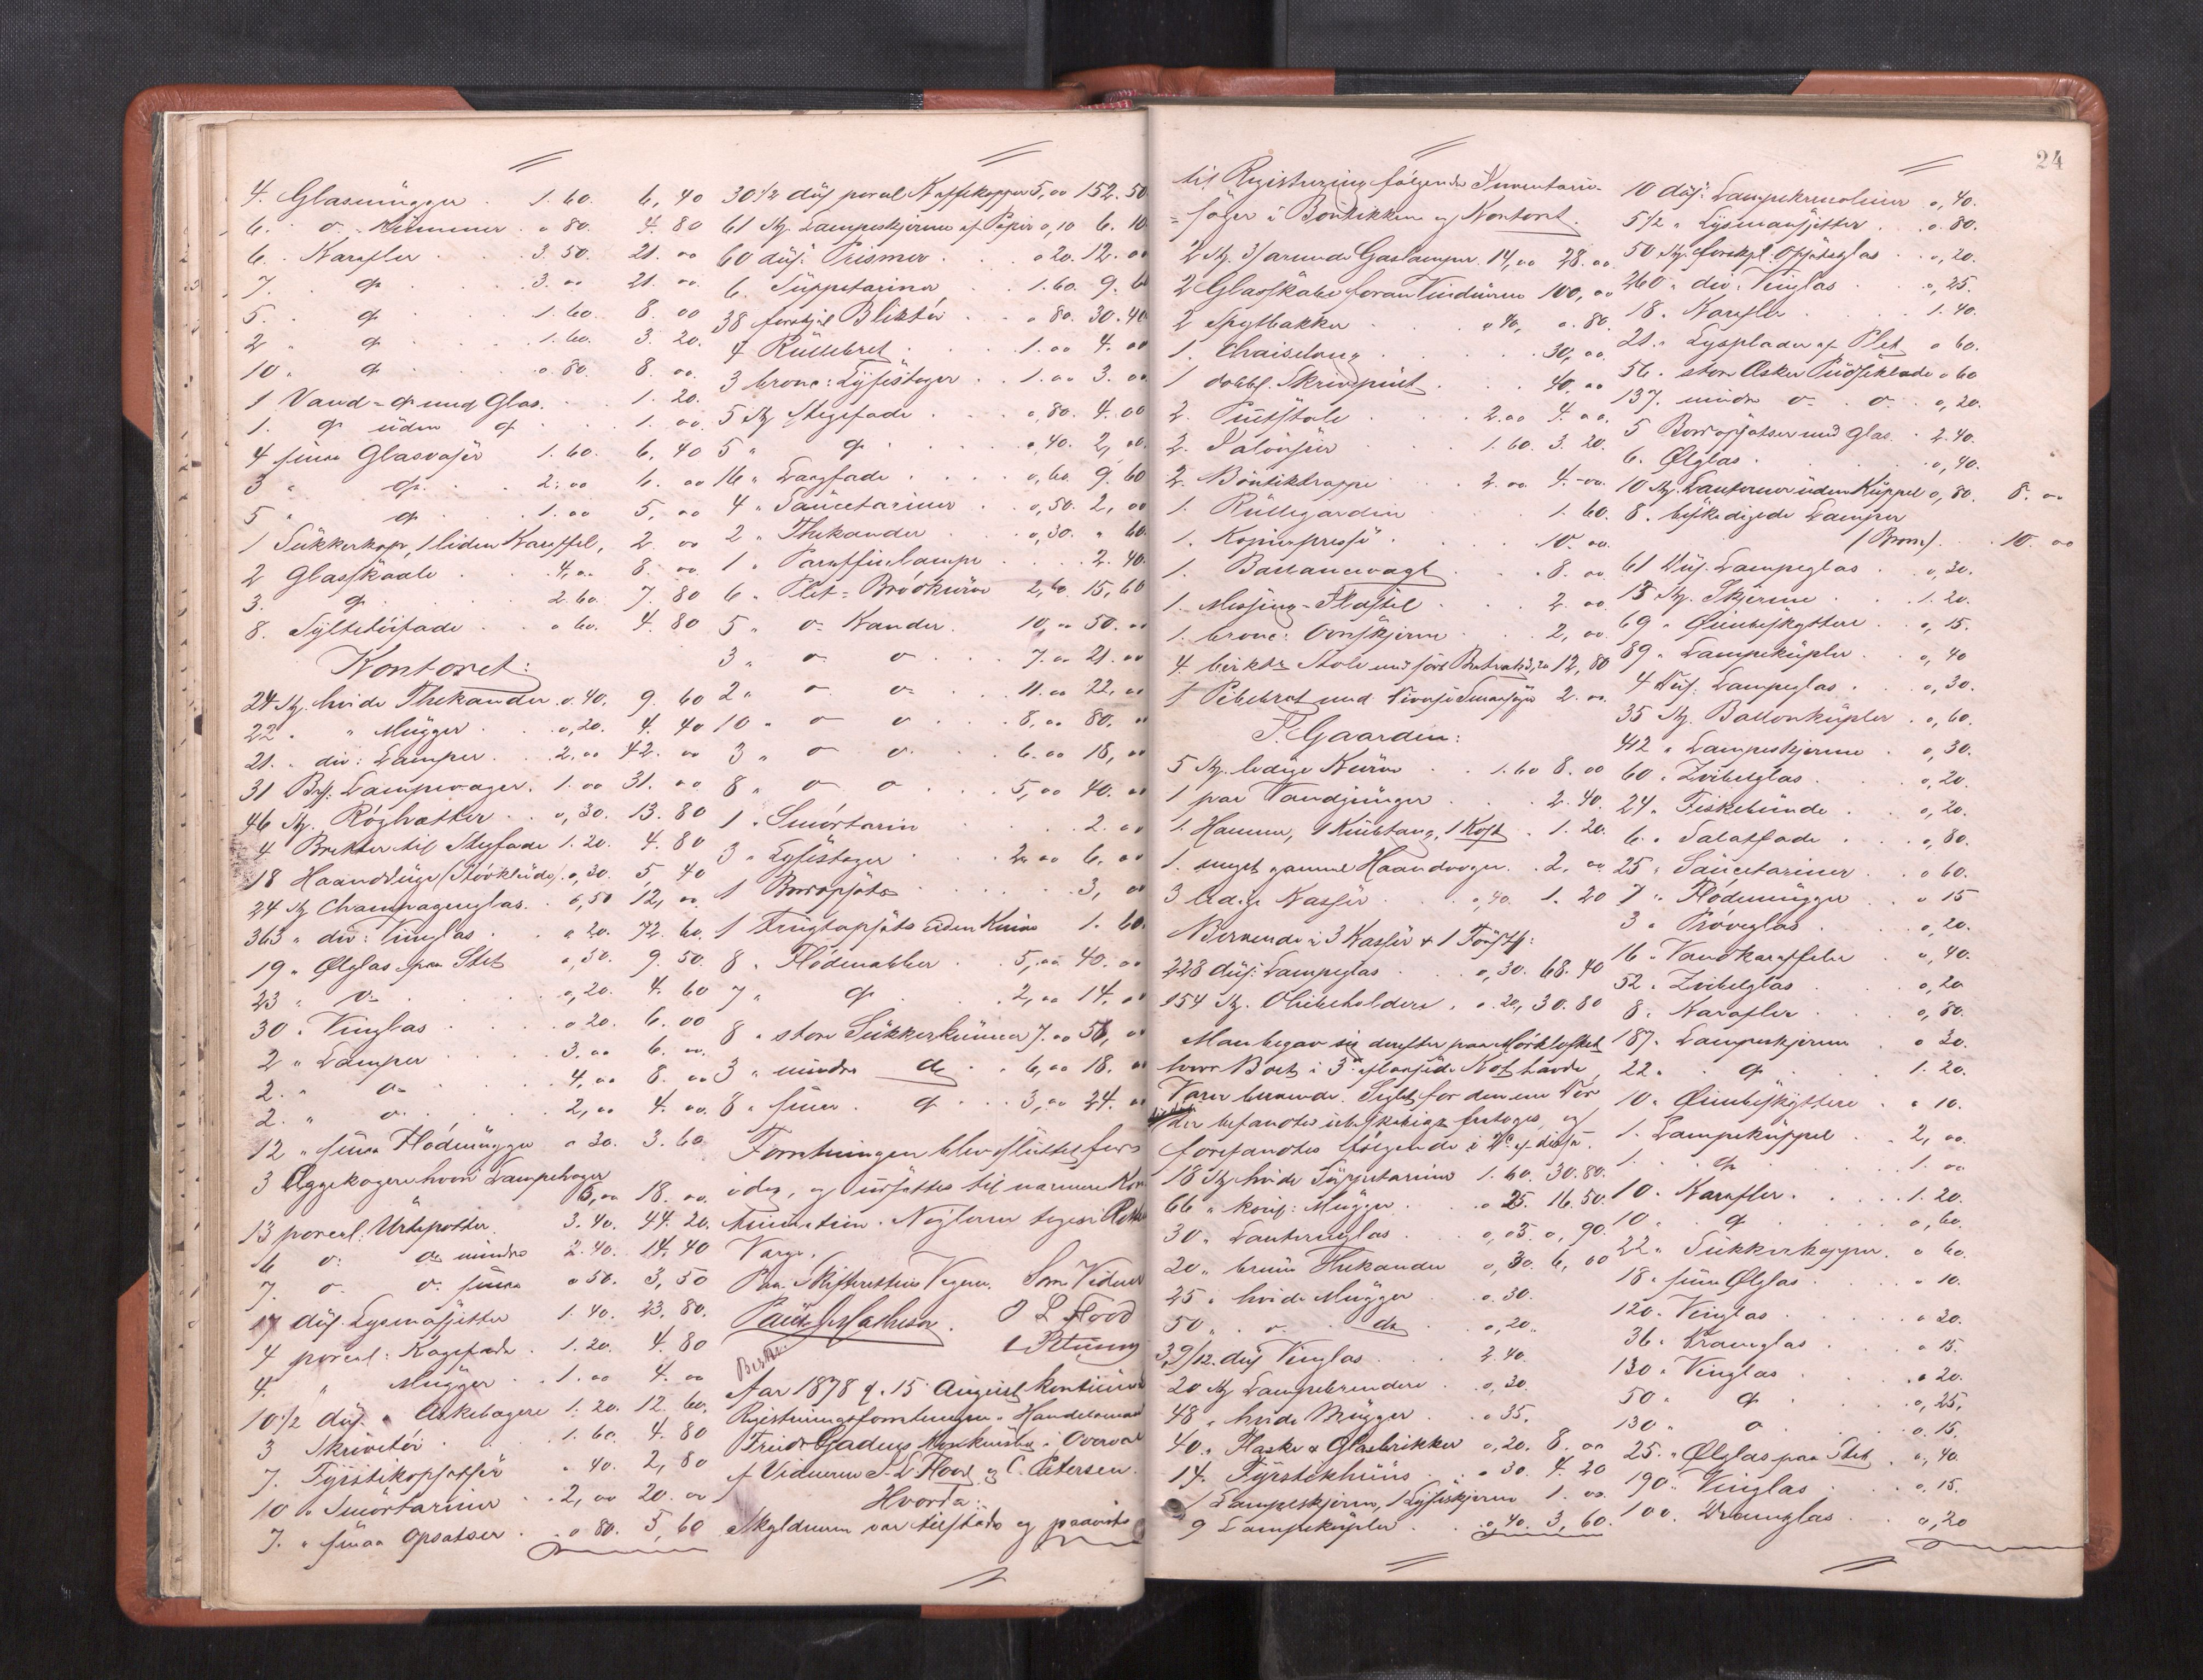 4. Glasmugger . 1.60. 6,40
6. o. Kummer . o 80. 4.80
6. Karafler . 3.50. 21.oo
7. do . 3.oo 21.oo
5. do . 1.60. 8.oo
2 " do . 1.60. 3.20.
10. do . o.80. 8.oo.
1 Vand-do med Glas. 1.20.
1. do uden do . 1.oo.
4 smaa Glasvaser 1.60. 6.40
3 " do . 2.oo 6.oo
5 " do . 1.oo 5.oo
1 Sukkerkop, 1 liden Karaffel, 2.oo
2 Glasskaale . 4,oo 8.oo
3. do . 2.60. 7.80
8. Syltetøifade . o 60. 4.80
Kontoret:
24 St. hvide Thekander . o.40. 9.60
22 " " Mugger . o,20. 4.40
21. " div: Lamper . 2,oo 42.oo
31 Lampevager. 1.oo 31.oo
46 St. Røghætter . o,30. 13.80
4 Bretter til Stegfade 1.20. 4.80
18 Haandduge (Støvklude) . o,30. 5,40
24 St Champagneglas. 6,50 12,oo
363 " div: Vinglas . o 20. 72.60.
19 " Ølglas paa Stet o,50. 9.50.
23 " o. . o,20. 4.60
30 " Vinglas . o 20. 6.00
2 " Lamper . 3.oo 6.oo.
2. " o. . 4,oo 8.oo
2. " o. . 2,oo 4.oo.
12 " smaa Flødemugger o 30. 3.60.
3 Æggekogere hvori Lampekoger
6,oo 18.oo.
13 porcel. Urtepotter 3.40. 44.20.
6 o. o. mindre 2.40. 14.40
7. o. o. smaa o 50. 3,50
17 dus. Lysmansjetter 1.40. 23.80.
4 porcel: Kagefade . 1.20. 4.80
4. " Mugger . 1.oo 4.oo
10 1/2 dus. " Askebagere 1.20. 12.60.
3 Skrivetøi . 1.60. 4.80
7. Fyrstikopsatser . o 40. 2,80
10 " Smørtariner . 2,oo 20.oo
7. " smaa Opsatser . o 80. 5,60
30 1/2 dus porcel Kaffekopper 5,oo 152.50
61 St. Lampeskjerme af Papir o,10 6.10
60 dus. Prismer . o 20. 12.oo
6. Suppetariner . 1.60. 9.60
38 forskjel Bliktøi . o 80. 30.40
4 Rullebret . 1.oo 4.oo
3 bronc: Lysestager . 1.oo 3.oo
5 St Stegefade . o,80. 4.00
5 " do . o 40. 2,oo.
16 " Langfade . o,60. 9.60
4 " Saucetariner . o,50. 2,oo
2 " Thekander . o,30. " 60.
1 " Paraffinlampe . 2.40.
6 " Plet-Brødkurve 2,60. 15,60
5 " o. Kander. 10,oo 50.oo
3 " o o . 7.oo 21.oo
2 " o o . 11.oo 22,oo
10 " o o . 8,oo 80.oo
3 " o o . 6.oo 18,oo
8 " o o . 5,oo 40.oo
1 " Smørtarin . 2.oo
3 " Lysestager . 2,oo 6.oo
1 Bordopsats . 3,oo
1 Frugtopsats uden Kniv 1.60.
8 " Flødenabber . 5,oo 40.oo
7 " do . 2,oo 14.oo
8 " store Sukkerkummer 7.oo 56,oo
3 " mindre do . 6,oo 18.oo
8 " smaa . do . 3,oo 24.oo
Forretningen blev sluttet for
idag, og udsattes til nærmere Kon
tinuation. Nøglerne toges i Rettens
Varge.
Paa Skifterettens Vegne. Som Vidner
Paul Mathesen. O L Flood
C Petersen
Aar 1878 d. 15 August kontinueredes
Registreringsforretningen i Handelsmand
Fredr Gades Konkursbo i Overvær
af Vidnerne O. L. Flood og C. Petersen.
Hvorda:
Skyldneren var tilstede og paaviste
24
til Registrering følgende Inventarie-
=sager i Boutikken og Kontoret.
2 St. 3/armede Gaslamper. 14,oo 28.oo
2 Glasskabe foran Vinduerne 100,oo
2 Spytbakker . o 40, o.80.
1. Chaiselong . 30,oo.
1 dobbl. Skrivepult . 40,oo
2. Pultstole . 2.oo 4.oo.
2. 1.60. 3.20.
2. Boutiktrapper . 2.oo 4.oo.
1. Rullegardin . 1.60.
1. Kopierpresse . 10.oo.
1. Ballancevægt . 8.oo.
1. Messing-Stativ . 2.oo.
1. bronc: Ovnskjerm . 2,oo.
4. birketr Stole med sort Betræk 3,20 12,80
1 Pibebret med diverse Smaasager 2.oo.
I. Gaarden:
5 St. ledige Kurve . 1.60 8.00
1 par Vandspange . 2.40.
1. Hammer, 1 Knibtang, 1 Kost . 1.20.
1. meget gammel Haandvogn . 2.oo
3 ledige Kasser . o,40. 1.20
Beroende i 3 Kasser & 1 Foustg:
228 dus. Lampeglas . o,30. 68.40
154 St. Oliebeholdere . o.20, 30.80
Man begav sig derefter paa Mørkloftet
hvor Boet i 3de aflaasede Kot havde
Varer beroende. Seglet for den ene Dør
der befandtes ubeskadiget fratoges, og
forefandtes følgende i No. 1 af disse.
18 St. hvide Suppetariner 1.60. 30.80.
66 " konif: Mugger . o 25. 16.50.
30 " Lanterneglas . o,03. o,90.
20 " brune Thekander o,30. 6,00
25 " hvide Mugger . o.30.
50 " . o. do . o,20.
3 9/12. dus Vinglas . 2.40.
20 St Lampebrendere . o,30.
48 " hvide Mugger . o 35.
40 " Flaske & Glasbrikker o,20. 8.oo
14. Fyrstikhuus . o 30. 4.20
1 Lampeskjerm, 1 Lyseskjerm 1.oo
9 Lampekupler . o,40. 3,60.
10 dus. Lampekrinoliner o,40.
5 1/2 " Lysmansjetter . o.80.
50 St. forskjel. Opsatsglas . o,20.
260 " div. Vinglas . o,25.
18. Karafler . 1.40.
21 " Lysplader af Plet o 60.
56. store Æsker o 60
137. mindre o. o. . o,20.
5 Bordopsatser med Glas . 2.40.
6. Ølglas . o,40.
10 St. Lanterner uden Kuppel o,80. 8.oo
8. beskadigede Lamper
(Bronc) . 10.oo
61 dus. Lampeglas . o,30.
13 St. Skjerme . 1.20.
69 " Øienbeskyttere . o,15.
89 " Lampekupler . o,40
4 dus. Lampeglas . o,30.
35 St. Ballonkupler . o,60.
42 " Lampeskjerme . o,30.
60 " Zvibelglas . o,20.
24 " Fiskebunde . o,20.
6. " Salatfade . o,80.
25 " Saucetariner . o 60.
7 " Flødemugger . o 15
3 " Prøveglas . o,20.
16 " Vandkarafler . o,40.
52 " Zvibelglas . o,20
8 " Karafler . o,80.
187 " Lampeskjerme . o 30.
22 " do . 1.20.
10 " Øienbeskyttere . o 10.
1 " Lampekuppel . 2,oo.
1. . do . 1.oo
10 " Karafler . 1.20.
10 " do . o,60.
22 " Sukkerkopper . o 60.
18 " smaa Ølglas . o 10.
120 " Vinglas . o 20.
36 " Dramglas . o 15.
130 " Vinglas . o 20.
50 " do . o,25,
130 " o . o.15.
25 " Ølglas paa Stet . o,40.
190 " Vinglas . o,15.
100. Dramglas . o,20